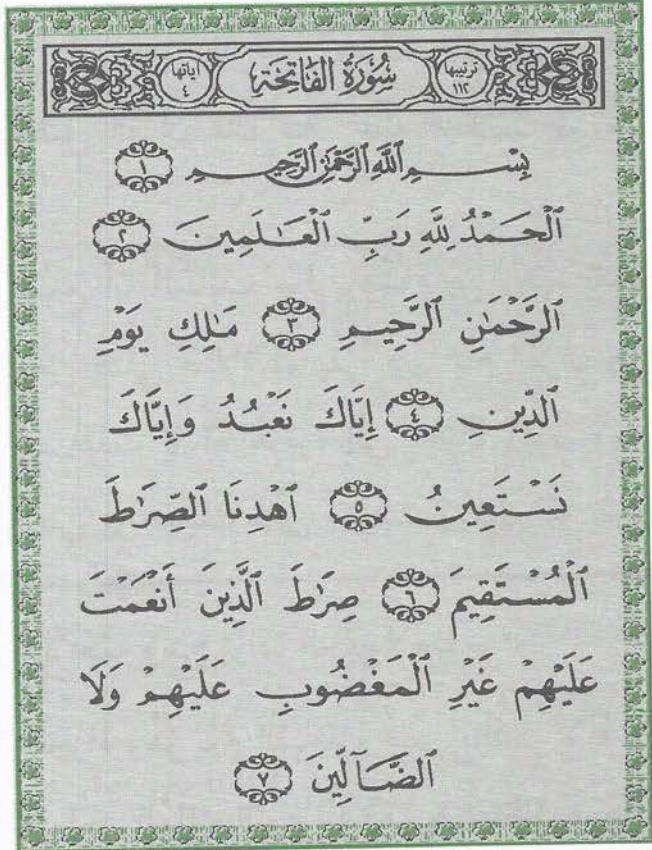 ترتيبها ١١٢ سُورَةُ الفَاتِحَةِ آياتها ٤
بِسْمِ ٱللَّهِ ٱلرَّحْمَٰنِ ٱلرَّحِيمِ ١
ٱلْحَمْدُ لِلَّهِ رَبِّ ٱلْعَٰلَمِينَ ٢
ٱلرَّحْمَٰنِ ٱلرَّحِيمِ ٣ مَٰلِكِ يَوْمِ
ٱلدِّينِ ٤ إِيَّاكَ نَعْبُدُ وَإِيَّاكَ
نَسْتَعِينُ ٥ ٱهْدِنَا ٱلصِّرَٰطَ
ٱلْمُسْتَقِيمَ ٦ صِرَٰطَ ٱلَّذِينَ أَنْعَمْتَ
عَلَيْهِمْ غَيْرِ ٱلْمَغْضُوبِ عَلَيْهِمْ وَلَا
ٱلضَّآلِّينَ ٧